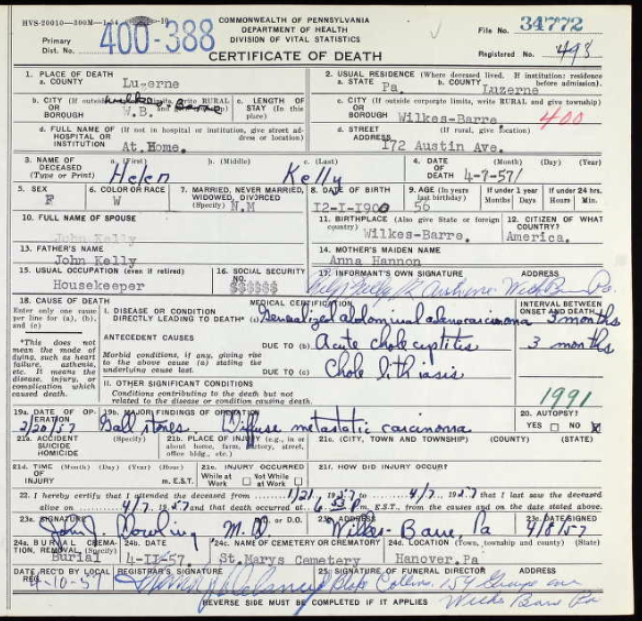 HVS-20010—300M—1-54
COMMONWEALTH OF PENNSYLVANIA
DEPARTMENT OF HEALTH
DIVISION OF VITAL STATISTICS
CERTIFICATE OF DEATH
Primary
Dist. No.
400-388
File No. 34772
Registered No. 493
1. PLACE OF DEATH
a. COUNTY Luzerne
2. USUAL RESIDENCE (Where deceased lived. If institution: residence before admission).
a. STATE Pa. b. COUNTY Luzerne
b. CITY (If outside corporate limits, write RURAL and give township)
OR
BOROUGH W.B. Wilkes-Barre
c. LENGTH OF STAY (In this place)
c. CITY (If outside corporate limits, write RURAL and give township)
OR
BOROUGH Wilkes-Barre 400
d. FULL NAME OF HOSPITAL OR INSTITUTION (If not in hospital or institution, give street address or location)
At Home.
d. STREET ADDRESS (If rural, give location)
172 Austin Ave.
3. NAME OF DECEASED (Type or Print)
a. (First) Helen b. (Middle) c. (Last) Kelly
4. DATE OF DEATH (Month) (Day) (Year)
4-7-57/
5. SEX F
6. COLOR OR RACE W
7. MARRIED, NEVER MARRIED, WIDOWED, DIVORCED (Specify) N.M
8. DATE OF BIRTH 12-I-1900
9. AGE (In years last birthday) 56
If under 1 year Months Days
If under 24 hrs. Hours Min.
10. FULL NAME OF SPOUSE
John Kelly
11. BIRTHPLACE (Also give State or foreign country) Wilkes-Barre.
12. CITIZEN OF WHAT COUNTRY? America.
13. FATHER'S NAME
John Kelly
14. MOTHER'S MAIDEN NAME
Anna Hannon
15. USUAL OCCUPATION (even if retired)
Housekeeper
16. SOCIAL SECURITY NO.
$$$$$$
17. INFORMANT'S OWN SIGNATURE ADDRESS
Wilkes Barre Pa.
18. CAUSE OF DEATH
Enter only one cause per line for (a), (b), and (c)
*This does not mean the mode of dying, such as heart failure, asthenia, etc. It means the disease, injury, or complication which caused death.
MEDICAL CERTIFICATION
INTERVAL BETWEEN ONSET AND DEATH
I. DISEASE OR CONDITION DIRECTLY LEADING TO DEATH* (a) Generalized abdominal adenocarcinoma 3 months
ANTECEDENT CAUSES
Morbid conditions, if any, giving rise to the above cause (a) stating the underlying cause last.
DUE TO (b) Acute cholecystitis 3 months
DUE TO (c) Cholelithiasis
II. OTHER SIGNIFICANT CONDITIONS
Conditions contributing to the death but not related to the disease or condition causing death.
1991
19a. DATE OF OPERATION 2/20/57
19b. MAJOR FINDINGS OF OPERATION
Gall stones. Diffuse metastatic carcinoma
20. AUTOPSY?
YES NO X
21a. ACCIDENT SUICIDE HOMICIDE (Specify)
21b. PLACE OF INJURY (e.g., in or about home, farm, factory, street, office bldg., etc.)
21c. (CITY, TOWN AND TOWNSHIP) (COUNTY) (STATE)
21d. TIME OF INJURY (Month) (Day) (Year) (Hour) m. E.S.T.
21e. INJURY OCCURRED
While at Work Not While at Work
21f. HOW DID INJURY OCCUR?
22. I hereby certify that I attended the deceased from 1/21 1957 to 4/7 1957 that I last saw the deceased
alive on 4/7 1957 and that death occurred at 6 P m. E.S.T., from the causes and on the date stated above.
23a. SIGNATURE John Dowling M.D. or D.O.
23b. ADDRESS Wilkes-Barre Pa
23c. DATE SIGNED 4/8/57
24a. BURIAL, CREMATION, REMOVAL (Specify) Burial
24b. DATE 4-11-57.
24c. NAME OF CEMETERY OR CREMATORY St. Marys Cemetery
24d. LOCATION (Town, township and county) (State) Hanover.Pa
DATE REC'D BY LOCAL REG. 4-10-57
REGISTRAR'S SIGNATURE
25. SIGNATURE OF FUNERAL DIRECTOR ADDRESS
Collins. 154
Wilkes Barre Pa
REVERSE SIDE MUST BE COMPLETED IF IT APPLIES